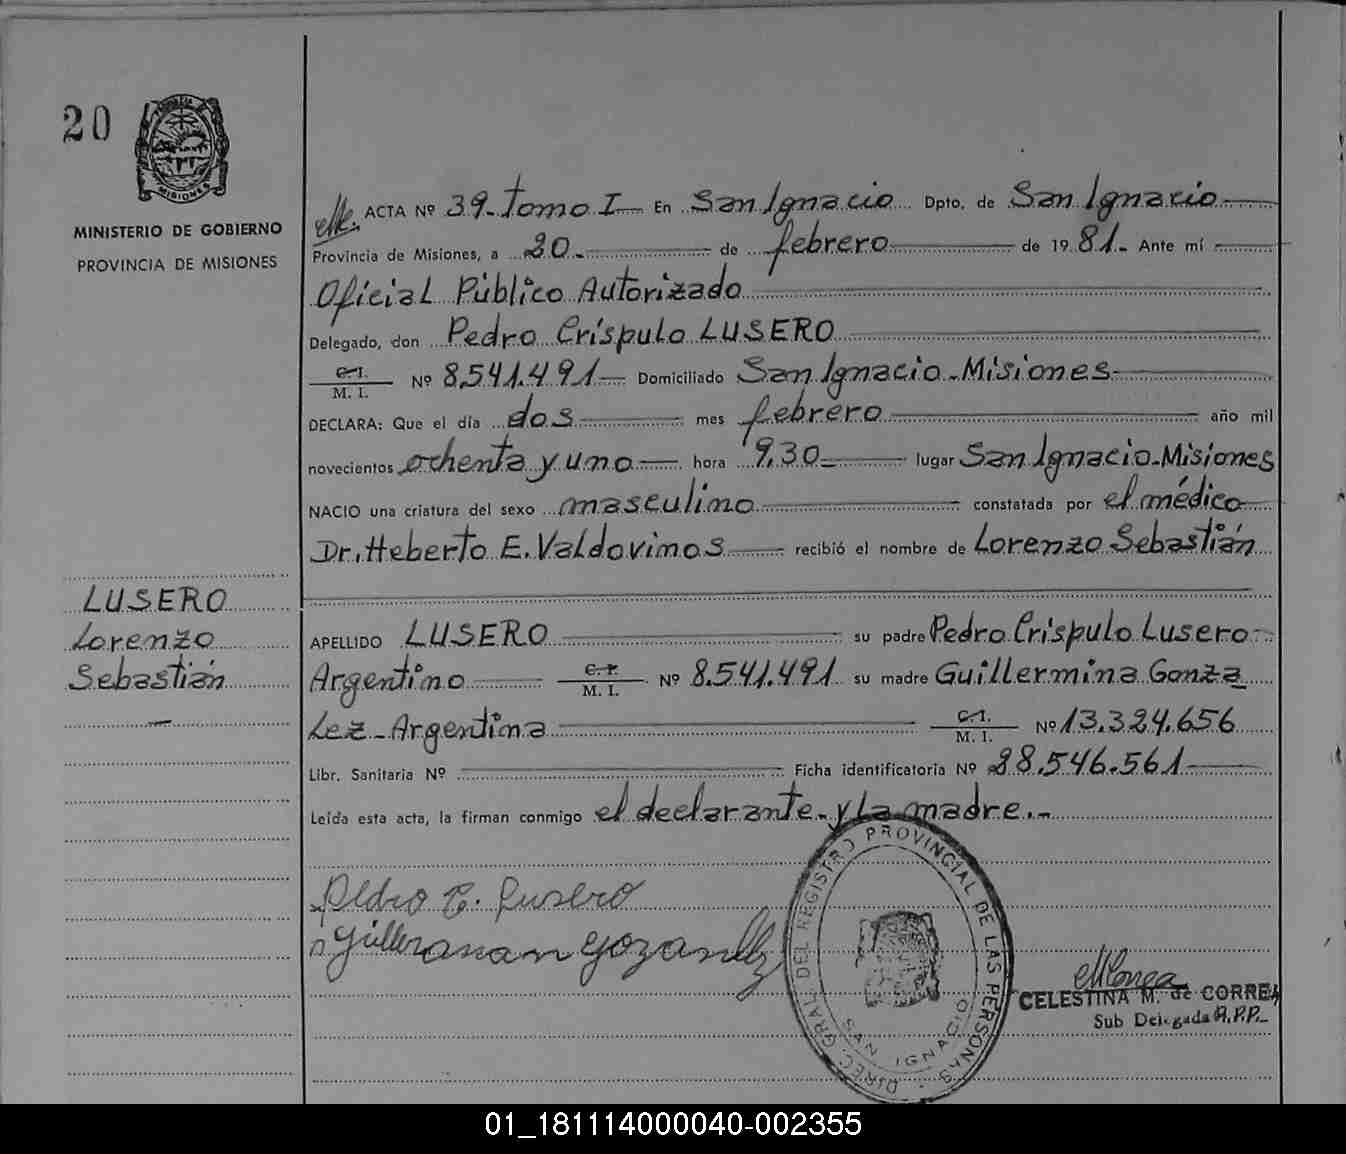 20
MISIONES
MINISTERIO DE GOBIERNO
PROVINCIA DE MISIONES
ACTA Nº 39-tomo I En San Ignacio Dpto. de San Ignacio
Provincia de Misiones, a 20- de febrero de 1981- Ante mí
Oficial Público Autorizado
Delegado, don Pedro Críspulo LUSERO
C. I. / M. I. Nº 8.541.491 Domiciliado San Ignacio-Misiones
DECLARA: Que el día dos mes febrero año mil
novecientos ochenta y uno hora 9,30 lugar San Ignacio-Misiones
NACIO una criatura del sexo masculino constatada por el médico
Dr. Heberto E. Valdovinos recibió el nombre de Lorenzo Sebastián
LUSERO
Lorenzo
Sebastián
APELLIDO LUSERO su padre Pedro Críspulo Lusero
Argentino C. I. / M. I. Nº 8.541.491 su madre Guillermina Gonza
lez-Argentina C. I. / M. I. Nº 13.324.656
Libr. Sanitaria Nº Ficha identificatoria Nº 28.546.561
Leída esta acta, la firman conmigo el declarante-y la madre.-
Pedro C. Lusero
DIREC. GRAL. DEL REGISTRO PROVINCIAL DE LAS PERSONAS
SAN IGNACIO
CELESTINA M. de CORREA
Sub Delegada R.P.P.
01_181114000040-002355